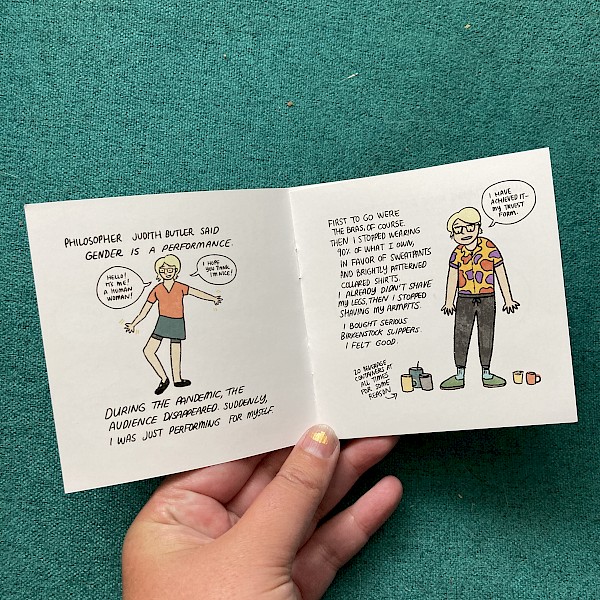 PHILOSOPHER JUDITH BUTLER SAID
GENDER IS A PERFORMANCE.
HELLO!
IT'S ME!
A HUMAN
WOMAN!
I HOPE
YOU THINK
I'M NICE!
DURING THE PANDEMIC, THE
AUDIENCE DISAPPEARED. SUDDENLY,
I WAS JUST PERFORMING FOR MYSELF.
FIRST TO GO WERE
THE BRAS, OF COURSE.
THEN I STOPPED WEARING
90% OF WHAT I OWN,
IN FAVOR OF SWEATPANTS
AND BRIGHTLY PATTERNED
COLLARED SHIRTS.
I ALREADY DIDN'T SHAVE
MY LEGS, THEN I STOPPED
SHAVING MY ARMPITS.
I BOUGHT SERIOUS
BIRKENSTOCK SLIPPERS.
I FELT GOOD.
I HAVE
ACHIEVED IT—
MY TRUEST
FORM.
20 BEVERAGE
CONTAINERS AT
ALL TIMES
FOR SOME
REASON